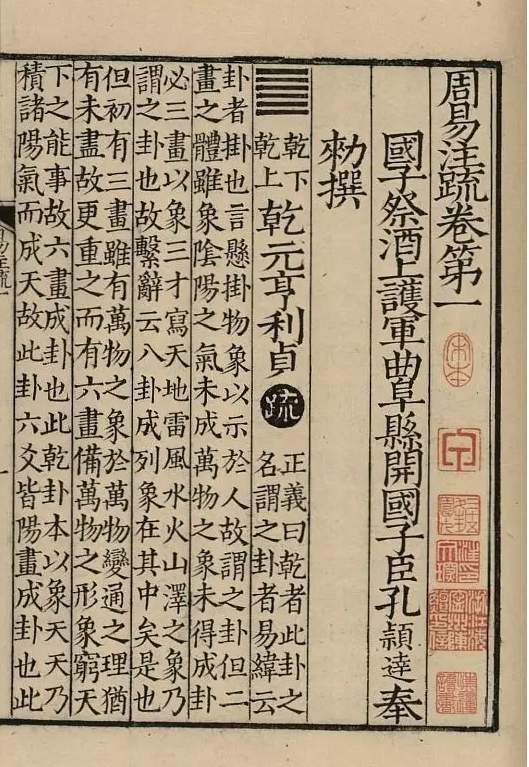 周易注疏卷第一
宋本
國子祭酒上護軍曲阜縣開國子臣孔穎達奉
勑撰
乾下
乾上
乾元亨利貞
疏
正義曰乾者此卦之
名謂之卦者易緯云
卦者掛也言懸掛物象以示於人故謂之卦但二
畫之體雖象陰陽之氣未成萬物之象未得成卦
必三畫以象三才寫天地雷風水火山澤之象乃
謂之卦也故繫辭云八卦成列象在其中矣是也
但初有三畫雖有萬物之象於萬物變通之理猶
有未盡故更重之而有六畫備萬物之形象窮天
下之能事故六畫成卦也此乾卦本以象天天乃
積諸陽氣而成天故此卦六爻皆陽畫成卦也此